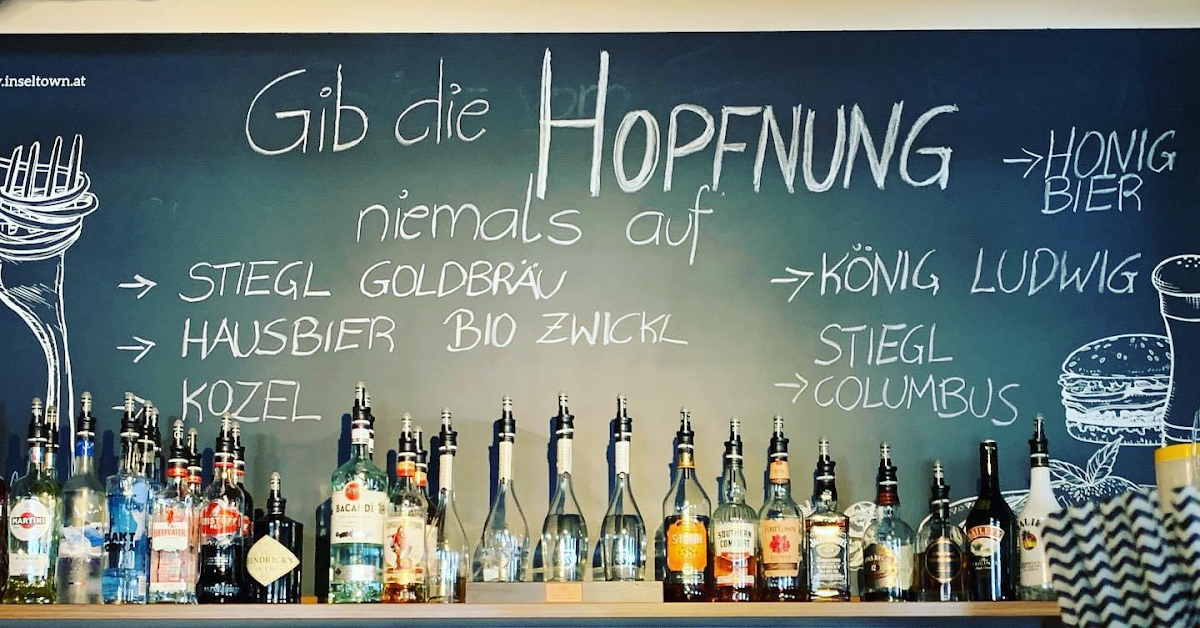 .inseltown.at
Gib die HOPFNUNG
niemals auf
→ HONIG
BIER
→ STIEGL GOLDBRÄU
→ HAUSBIER BIO ZWICKL
→ KOZEL
→ KÖNIG LUDWIG
STIEGL
→ COLUMBUS
MARTINI
BEEFEATER
HENDRICK'S
BACARDI
STROH
SOUTHERN
COMFORT
BAILEYS